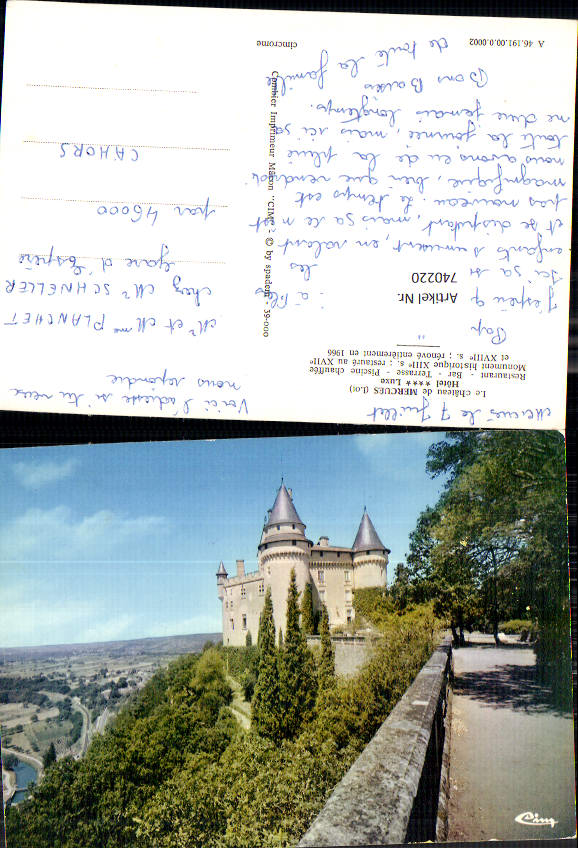 Le château de MERCUÈS (Lot)
Hôtel **** Luxe
Restaurant - Bar - Terrasse - Piscine chauffée
Monument historique XIIIe s. ; restauré au XVe
et XVIIIe s. ; rénové entièrement en 1966
Mercuès le 7 Juillet
Artikel Nr.
740220
les
enfants s'amusent, en râlant
et se disputant, mais ça ce n'est
pas nouveau. Le temps est
magnifique, bien que vendredi
nous avons eu de la pluie
toute la journée, mais ici ça
ne dure jamais longtemps.
Bons Baisers
de toute la famille
Combier Imprimeur Mâcon "CIM" - © by spadem - 39-000
Voici l'adresse si tu veux
nous répondre
Mr et Mme PLANCHET
chez Mr SCHNELLER
Gare d'Espère
par 46000
CAHORS
cimcrome
A 46.191.00.0.0002
Cim